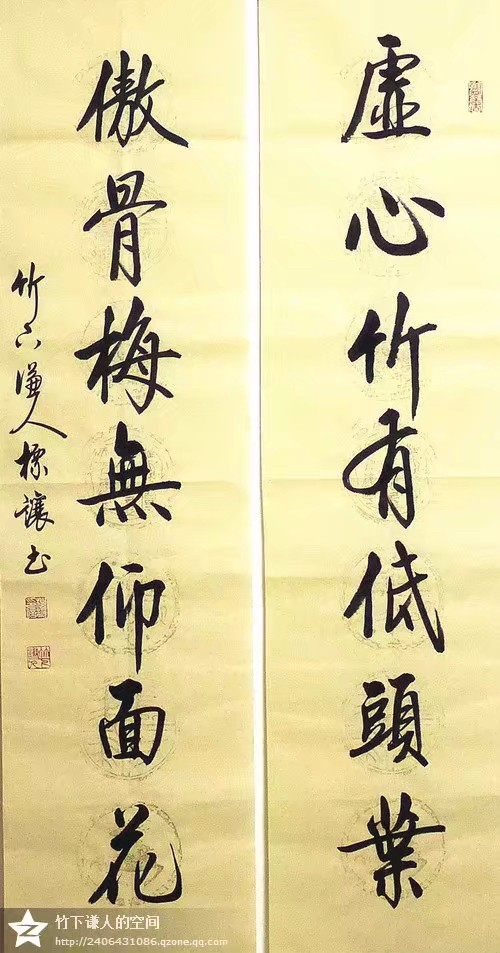 虛心竹有低頭葉
傲骨梅無仰面花
竹下谦人標讓书
竹下谦人的空间
http://2406431086.qzone.qq.com